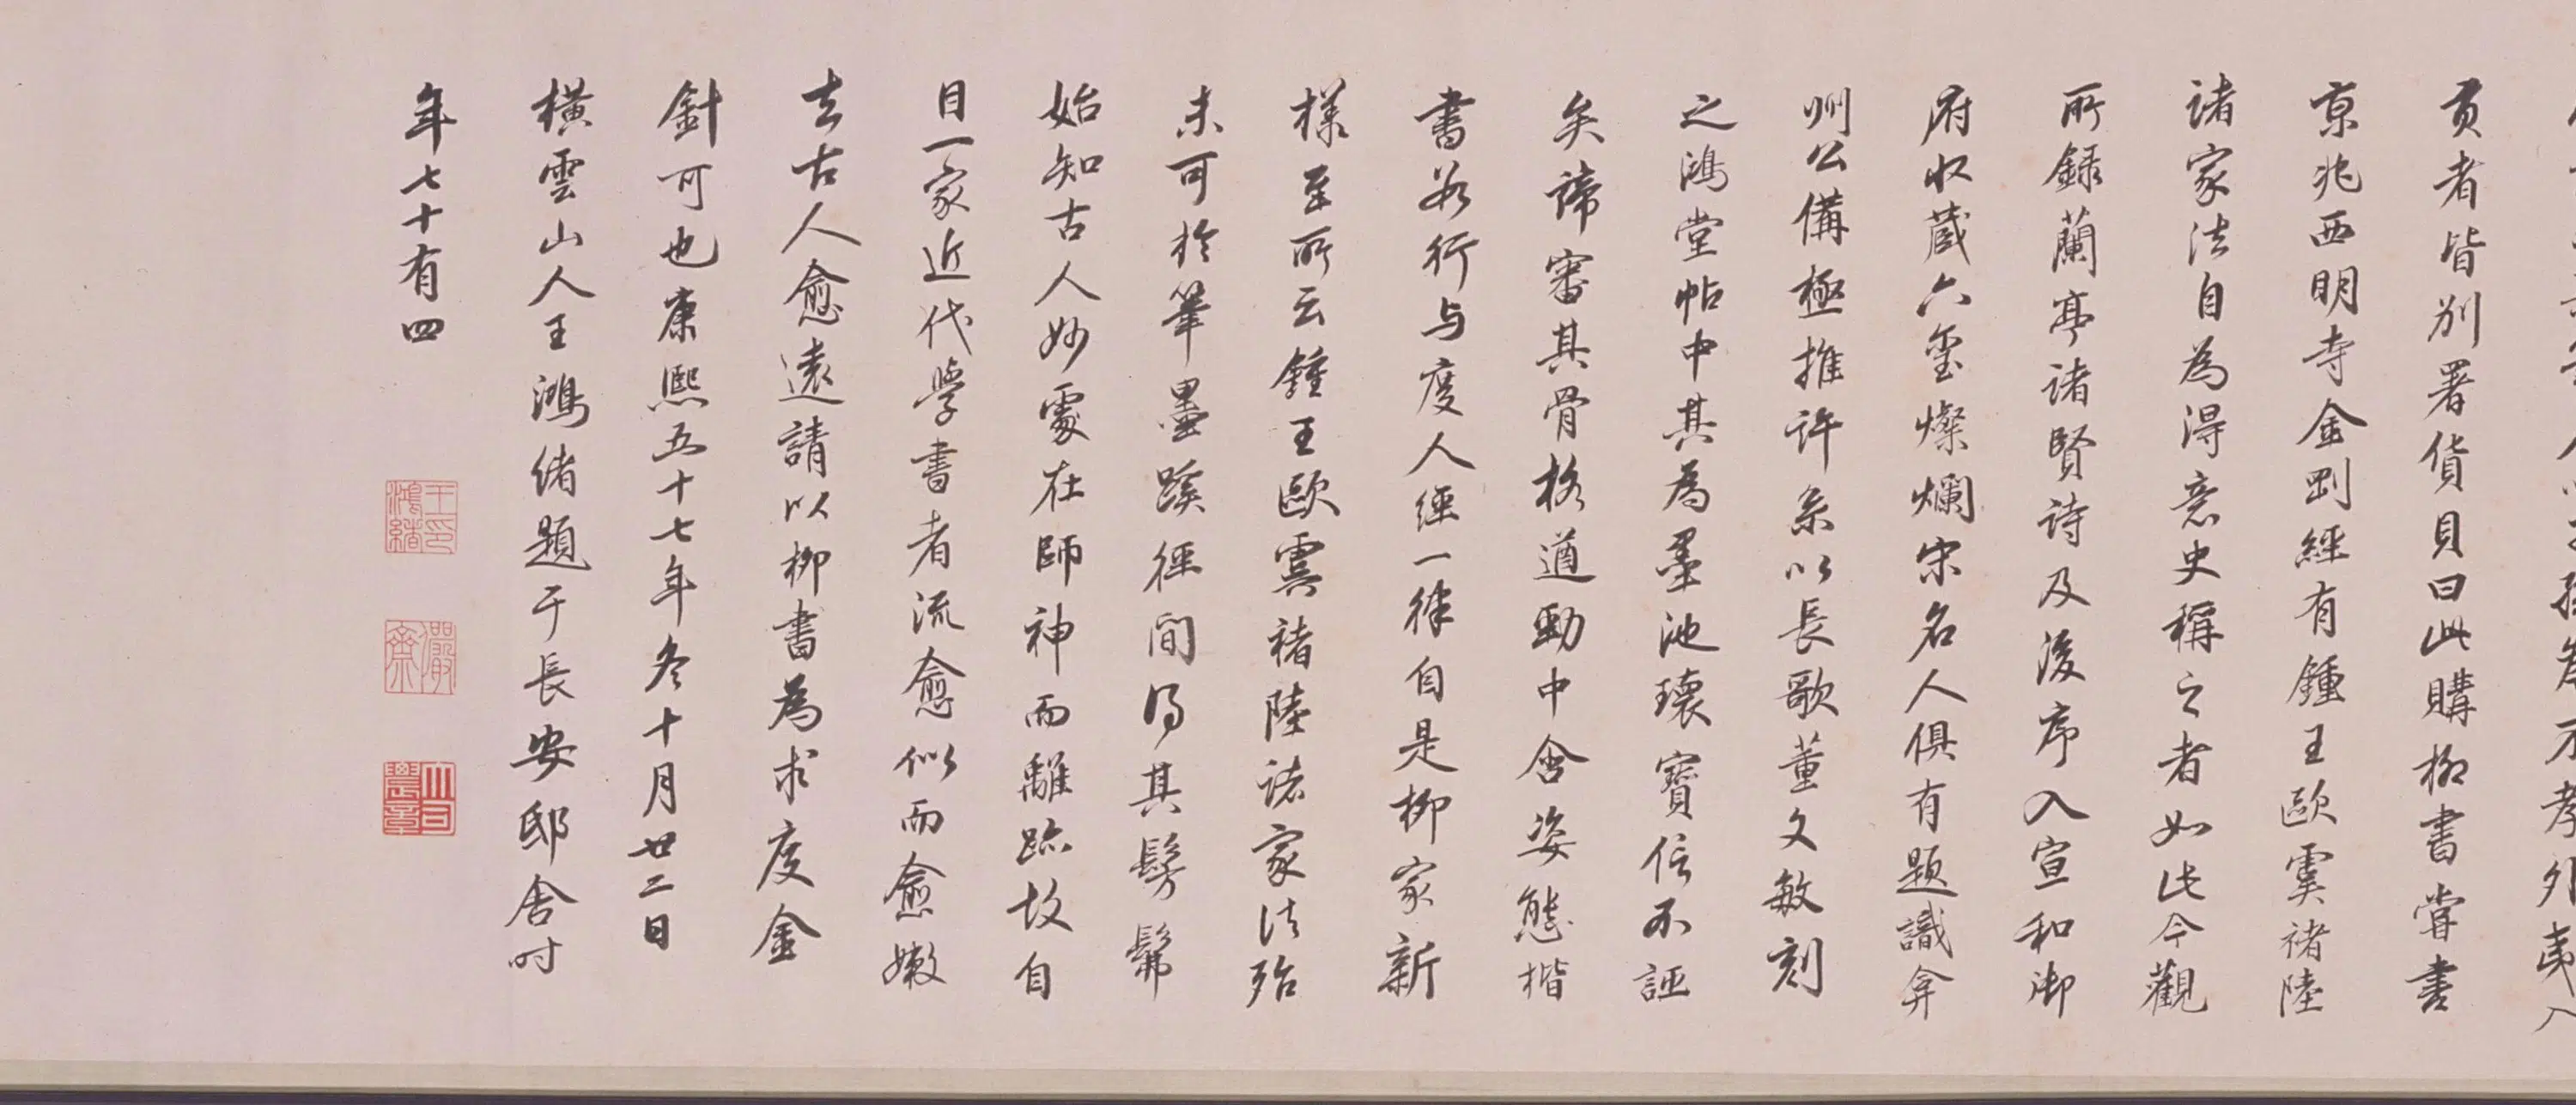 貢者皆別署貨貝曰此購柳書嘗書
京兆西明寺金剛經有鍾王歐虞褚陸
諸家法自為得意史稱之者如此今觀
所録蘭亭諸賢詩及後序入宣和御
府收蔵六璽燦爛宋名人俱有題識弇
州公備極推許系以長歌董文敏刻
之鴻堂帖中其為墨池瓌寶信不誣
矣諦審其骨格遒勁中含姿態楷
書若行与度人經一律自是柳家新
様至所云鍾王歐虞褚陸諸家法殆
未可於筆墨蹊徑間得其髣髴
始知古人妙處在師神而離跡故自
目一家近代學書者流愈似而愈嫩
去古人愈遠請以柳書為求度金
針可也康熙五十七年冬十月廿二日
橫雲山人王鴻緒題于長安邸舍时
年七十有四
王印鴻緒
儼齋
大司農章